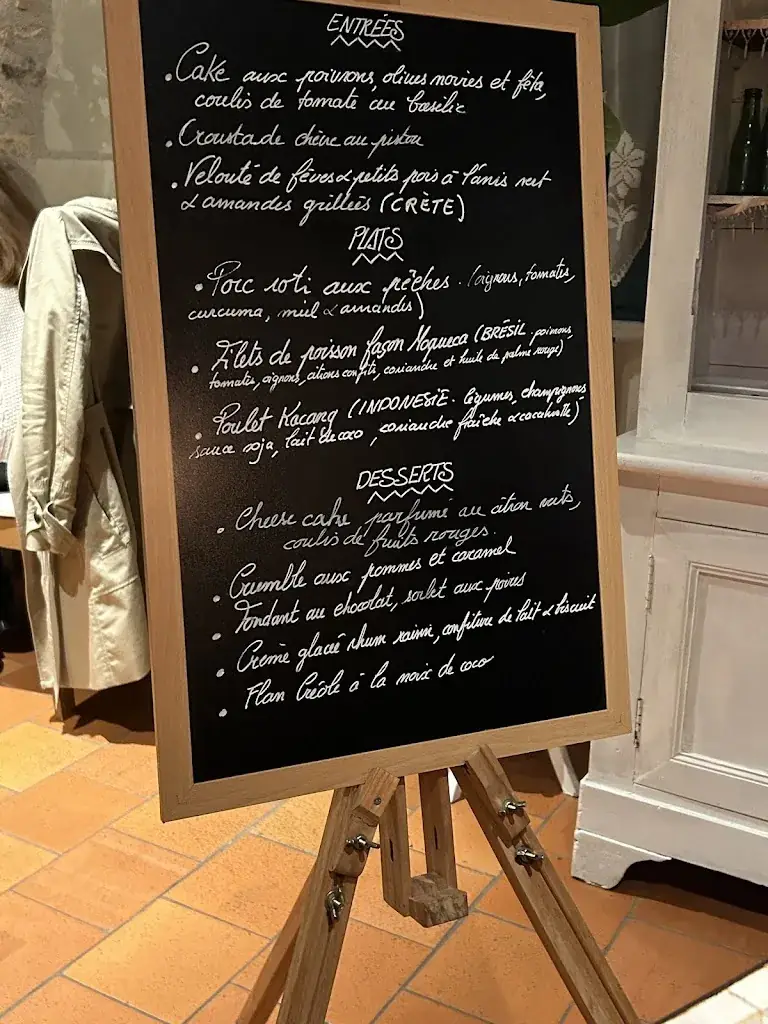 ENTRÉES
. Cake aux poivrons, olives noires et fêta,
coulis de tomate au basilic
. Croustade chèvre au pistou
. Velouté de fèves & petits pois à l'anis vert
& amandes grillées (CRÈTE)
PLATS
. Porc roti aux pêches. (oignons, tomates,
curcuma, miel & amandes)
. Filets de poisson façon Moqueca (BRÉSIL. poivrons,
tomates, oignons, citrons confits, coriandre et huile de palme rouge)
. Poulet Kacang (INDONESIE. légumes, champignons
sauce soja, lait de coco, coriandre fraîche & cacahuète)
DESSERTS
. Cheese cake parfumé au citron verts,
coulis de fruits rouges.
. Crumble aux pommes et caramel
. Fondant au chocolat, sorbet aux poires
. Crème glacée rhum raisin, confiture de lait & biscuit
. Flan Créole à la noix de coco